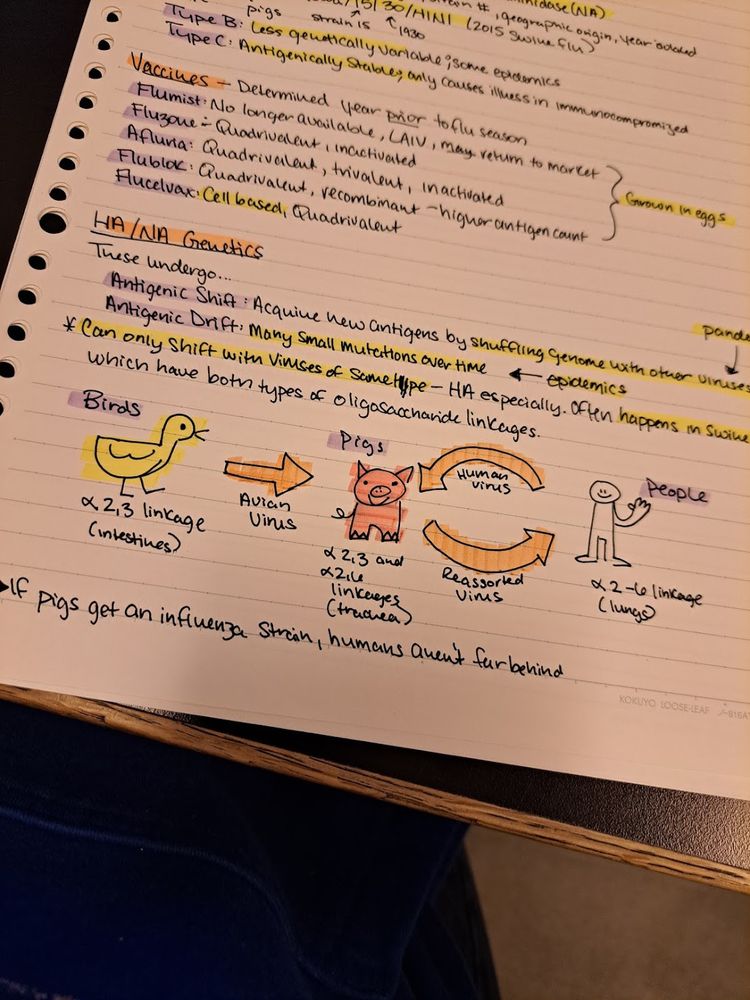 , geographic origin, year isolated
pigs strain 15 1930 (2015 Swine flu)
Type B: Less genetically variable; some epidemics
Type C: Antigenically Stable; only causes illness in immunocompromized
Vaccines - Determined year prior to flu season
Flumist: No longer available, LAIV, may return to market
Fluzone: Quadrivalent, inactivated
Afluria: Quadrivalent, trivalent, inactivated
Flublok: Quadrivalent, recombinant - higher antigen count
Grown in eggs
Flucelvax: Cell based, Quadrivalent
HA/NA Genetics
These undergo...
Antigenic Shift: Acquire new antigens by shuffling genome with other viruses
Antigenic Drift: Many small mutations over time ← epidemics
* Can only shift with viruses of same type - HA especially. Often happens in swine
which have both types of oligosaccharide linkages.
Birds
Pigs
People
Avian Virus
Human Virus
Reassorted Virus
α 2,3 linkage
(intestines)
α 2,3 and
α 2,6
linkages
(trachea)
α 2-6 linkage
(lungs)
If pigs get an influenza strain, humans aren't far behind
KOKUYO LOOSE-LEAF